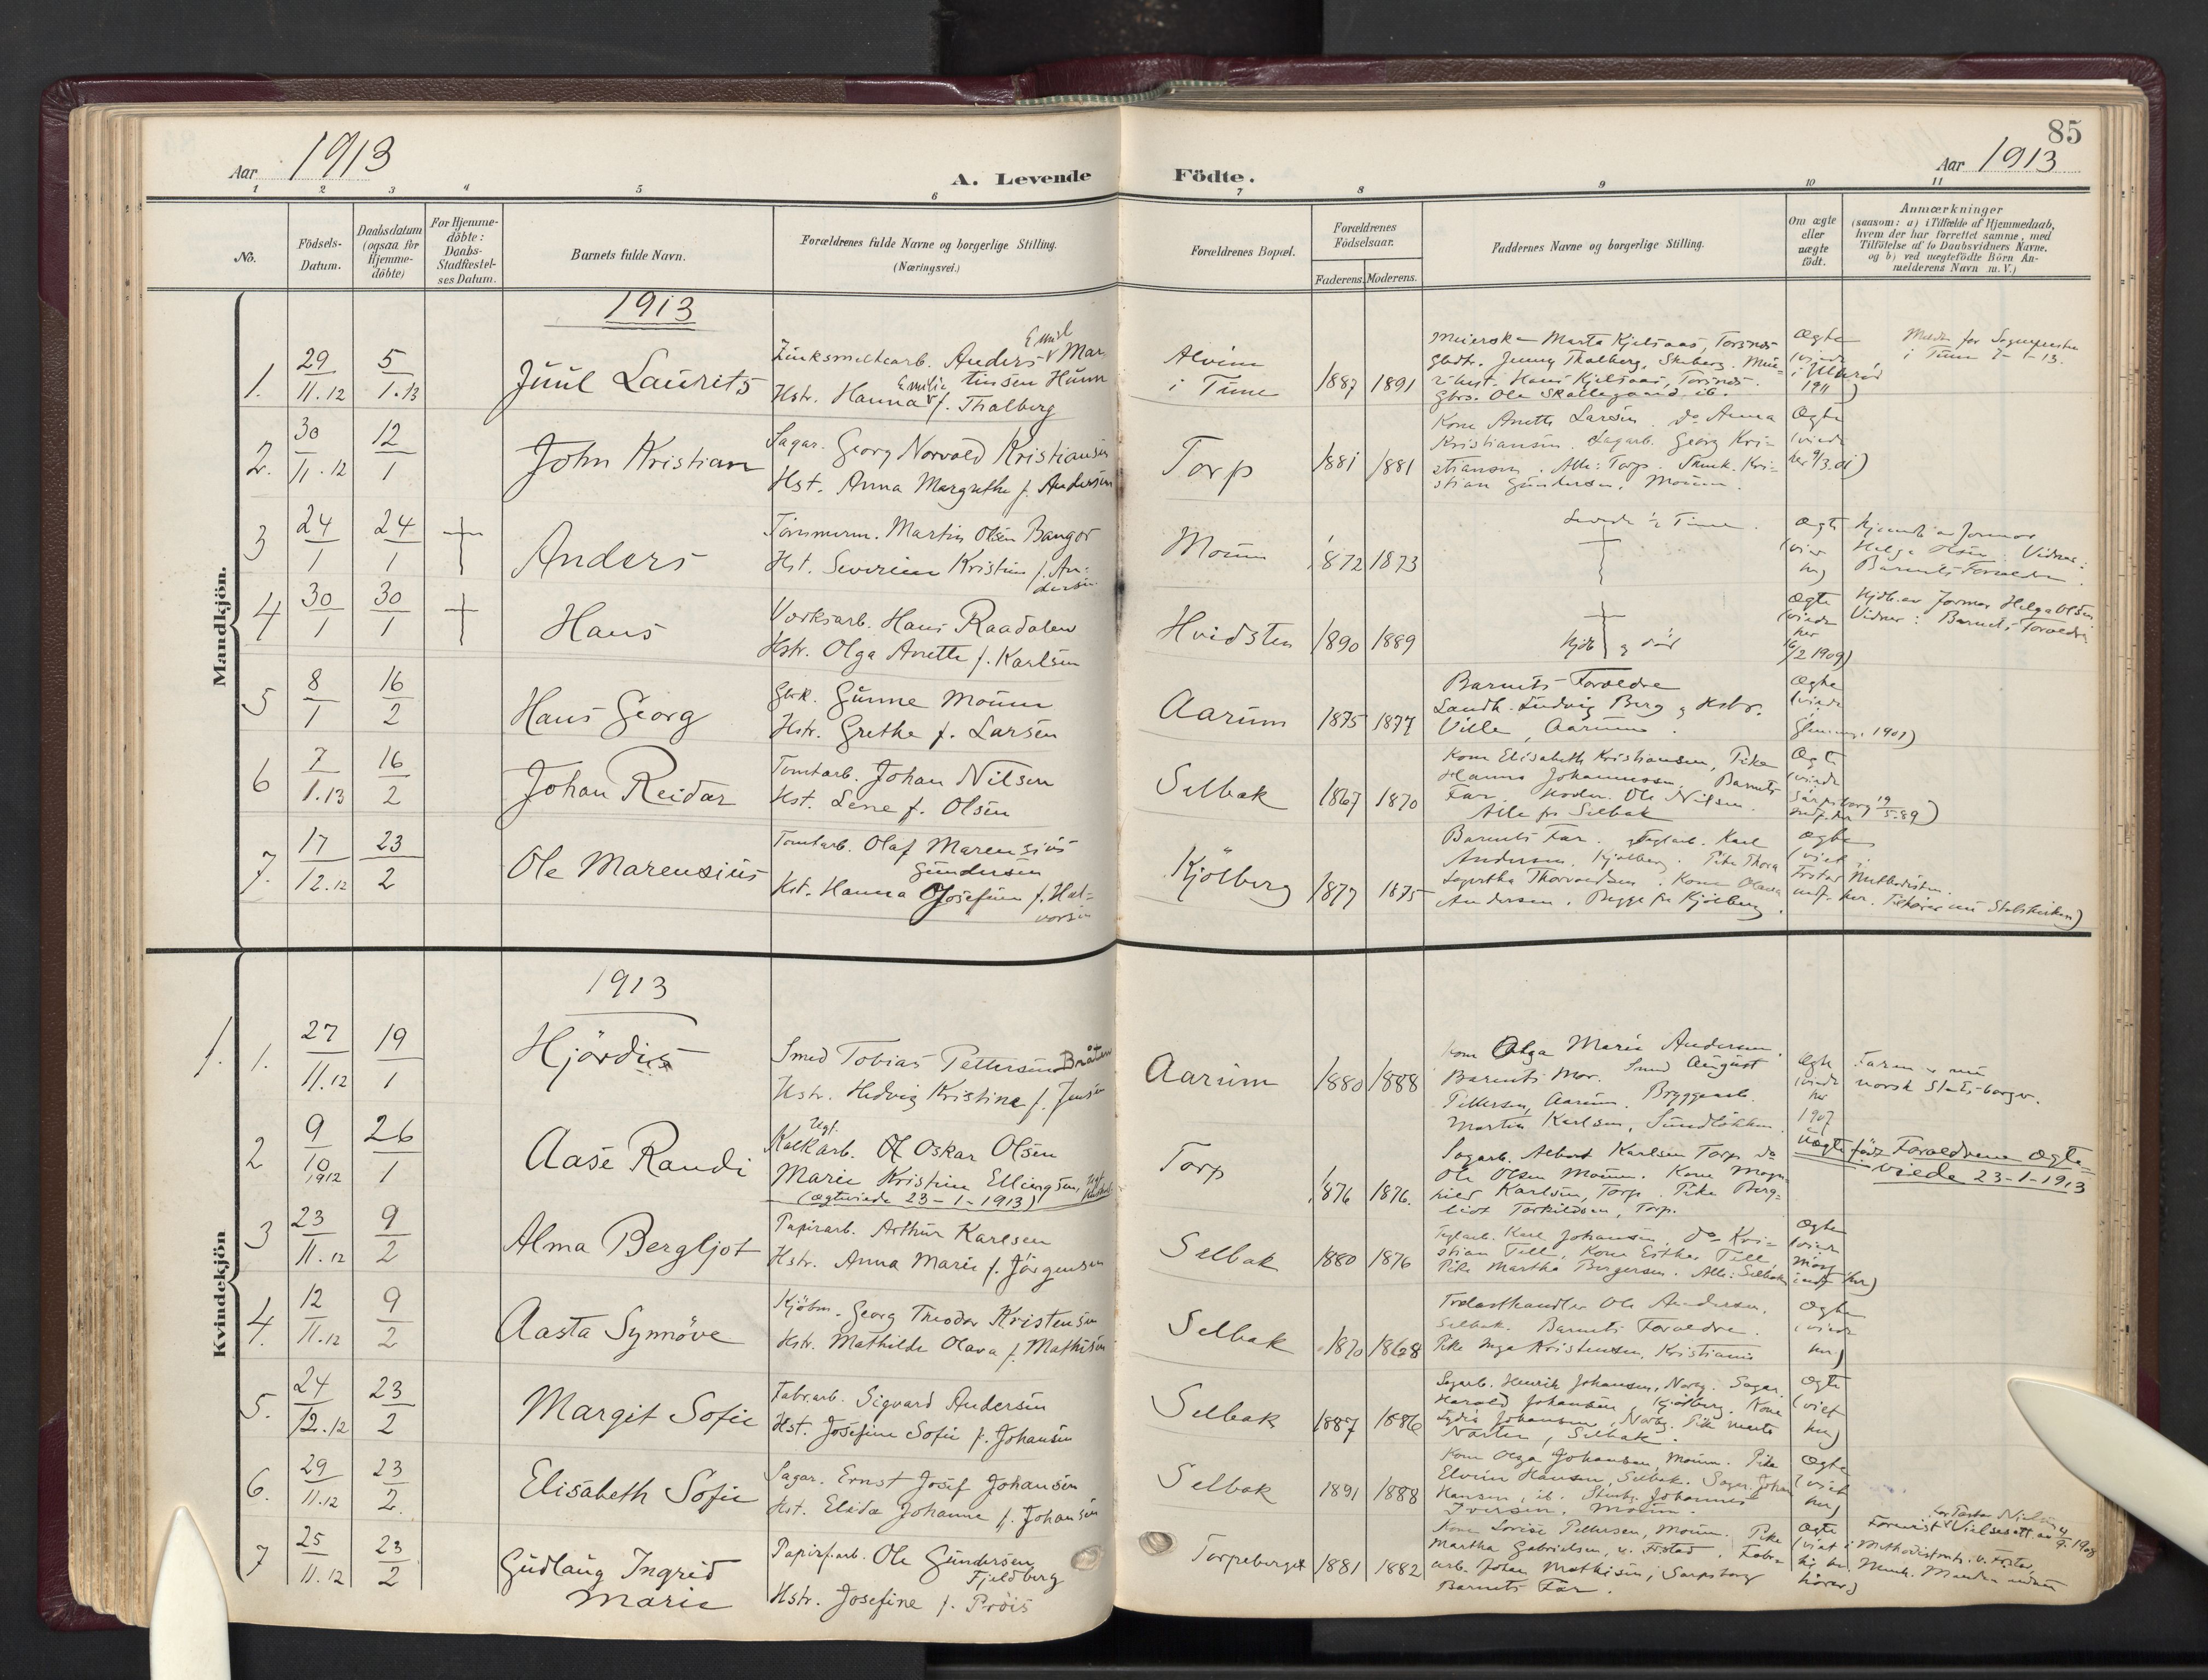 85
Aar 1913
A. Levende Födte.
Aar 1913
1 2 3 4 5 6 7 8 9 10 11
No.
Födsels-Datum.
Daabsdatum (ogsaa for Hjemme-döbte)
For Hjemme-döbte: Daabs-Stadfæstel-ses Datum.
Barnets fulde Navn.
Forældrenes fulde Navne og borgerlige Stilling.
(Næringsvei.)
Forældrenes Bopæl.
Forældrenes Födselsaar.
Faderens. Moderens.
Faddernes Navne og borgerlige Stilling.
Om ægte eller uægte födt.
Anmærkninger
(saasom: a) i Tilfælde af Hjemmedaab,
hvem der har forrettet samme, med
Tilföielse af to Daabsvidners Navne.
og b) ved uægtefödte Börn An-
melderens Navn m. V.)
Mandkjön.
1913
1. 29/11.12 5/1.13 Juul Laurits
Zinksmelterarb. Anders Emil Martinsen Hunn
Hstr. Hanna Emilie f. Thalberg
Alvim i Tune 1887 1891
Meierske Marta Kjelsaas, Torsnes
Gbdtr. Jenny Thalberg, Skeberg.
Hans Kjelsaas, Torsnes.
Gbrs. Ole Skallegaard, ib.
Ægte (viede i Ullerød 1911)
Meldt for Sognepresten
i Tune 7-1-13.
2. 30/11.12 12/1 John Kristian
Sagar. Georg Norvald Kristiansen
Hst. Anna Margrethe f. Andersen
Torp 1881 1881
Kone Anette Larsen. do Anna
Kristiansen. Sagarb. Georg Kri-
stiansen. Alle: Torp. Smed. Kri-
stian Gundersen, Moum.
Ægte (viede her 9/3.01)
3 24/1 24/1 † Anders
Tömmerm. Martin Olsen Bangor
Hst. Severine Kristine f. An-
dersen
Moum 1872 1873
†
Ægte (vier her)
Hjemdb av Jormor
Helga Olsen. Vidner:
Barnets Forældre.
4 30/1 30/1 † Hans
Verksarb. Hans Raadalen
Hstr. Olga Anette f. Karlsen
Hvidsten 1890 1889
†
Hjdb. og död
Ægte (viede her 16/2 1909)
Hjdb. av Jormor Helga Olsen
Vidner: Barnets Forældre
5 8/1 16/2 Hans Georg
Gbr. Gunne Moum
Hstr. Grethe f. Larsen
Aarum 1875 1877
Barnets Forældre
Landh. Ludvig Berg og Hstr.
Ville, Aarum.
Ægte (viede i Glemmen 1901)
6 7/1.13 16/2 Johan Reidar
Tomtarb. Johan Nilsen
Hst. Lene f. Olsen
Selbak 1867 1870
Kone Elisabeth Kristiansen, Pike
Hanna Johannessen, Barnets
Far, Ole Nilsen.
Alle fra Selbak
Ægte (viede Sarpsborg 19/5-89)
7. 17/12.12 23/2 Ole Marensius
Tomtarb. Olaf Marensius
Gundersen
Hst. Hanna Josefine f. Hal-
vorsen
Kjölberg 1877 1875
Barnets Far. Teglarb. Karl
Andersen, Kjölberg. Pike Thora
Thorvaldsen. Kone Olava
Andersen. Begge fra Kjölberg.
Ægte (viet i Frstad Methodistm.
indf. her. Tilhører nu Statskirken)
Kvindekjön
1913
1. 1. 27/11.12 19/1 Hjördis
Smed Tobias Pettersen Bråten
Hstr. Hedvig Kristine f. Jensen
Aarum 1880 1888
Kone Olga Marie Andersen.
Barnets Mor. Smed August
Pettersen, Aarum. Bryggearb.
Martin Karlsen, Sundlökken.
Ægte (viede her 1907
Faren er nu
norsk Stats-borger.
2 9/10 1912 26/1 Aase Randi
Ugf.
Kalkarb. Oskar Olsen
Marie Kristine Ellingsen, Ugf.
(Ægteviede 23-1-1913)
Torp 1876 1876.
Sagarb. Albert Karlsen Torp do
Ole Olsen Moum. Kone Mag-
hild Karlsen, Torp. Pike Berg-
liot Torkildsen, Torp.
Uægte födt Forældrene ægte-
viede 23-1-1913
3 23/11.12 9/2 Alma Bergljot
Papirarb. Arthur Karlsen
Hstr. Anna Marie f. Jörgensen
Selbak 1880 1876
Teglarb. Karl Johansen, do Kri-
stian Tell, Kone Esther Tell,
Pike Martha Børgersen. Alle: Selbak
Ægte (viede Moss indf her)
4. 12/11.12 9/2 Aasta Synnöve
Kjöbm. Georg Theodor Kristensen
Hstr. Mathilde Olava f. Mathisen
Selbak 1870 1868
Trælasthandler Ole Andersen,
Selbak. Barnets Forældre.
Pike Inga Kristensen, Kristiania
Ægte (viede her)
5. 24/12.12 23/2 Margit Sofie
Fabr.arb. Sigvard Andersen
Hst. Josefine Sofie f. Johansen
Selbak 1887 1886
Sagarb. Henrik Johansen, Norby. Sagar.
Harald Johansen, Kjölberg. Kone
Lydia Johansen, Norby. Pike
Selbak.
Ægte (viet her)
6. 29/11.12 23/2. Elisabeth Sofie
Sagar. Ernst Josef Johansen
Hst. Elida Johanne f. Johansen
Selbak 1891 1888
Kone Olga Johansen, Moum. Pike
Elvine Hansen, Selbak. Sagar. Johan
Hansen, ib. Stenhg. Johannes
Iversen. Moum.
Ægte (viet her)
7 25/11.12 23/2 Gudlaug Ingrid
Marie
Papirf.arb. Ole Gundersen
Fjeldberg
Hstr. Josefine f. Pröis
Torpeberget 1881 1882
Kone Lovise Pettersen, Moum. Pike
Martha Gabrielsen, v. Frstad. Fabr-
arb. Johan Mathisen, Sarpsborg
Barnets Far.
Ægte (viet i Methodistmh. v. Frstad,
for Pastor Nielsen
Forevist Vielsesatt. av 4/9. 1908